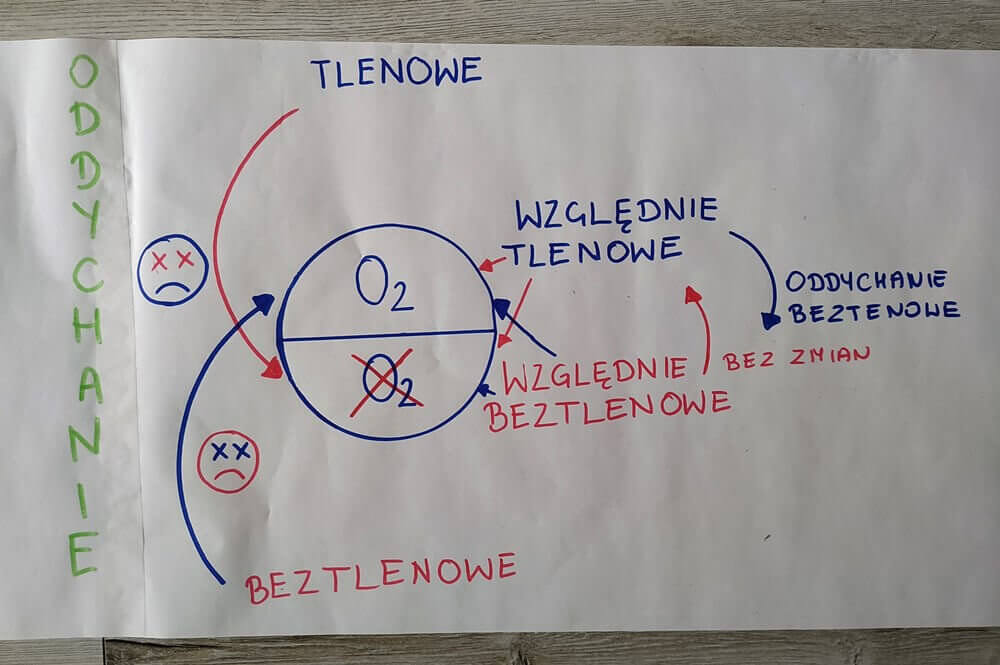 ODDYCHANIE
TLENOWE
WZGLĘDNIE
TLENOWE
ODDYCHANIE
BEZTENOWE
O2
O2
WZGLĘDNIE
BEZTLENOWE
BEZ ZMIAN
BEZTLENOWE